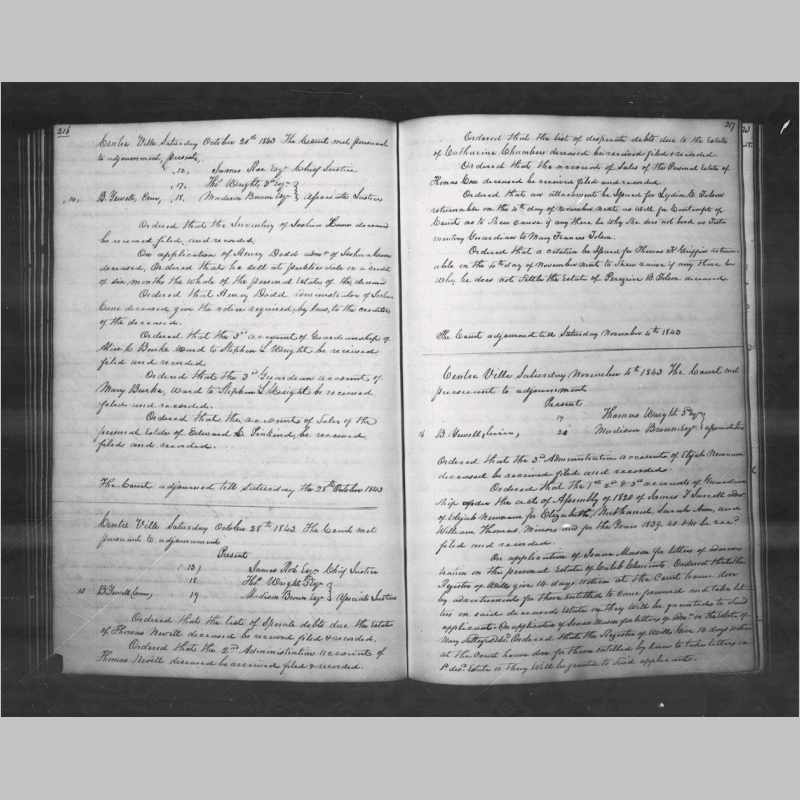 216
Centre Ville Saturday October 21st 1843 The Court met pursuant
to adjournment, present,
12, James Roe Esqr Chief Justice
17, Thos Wright 3d Esqr
10, B. Jewell, Crier, 18, Madison Brown Esqr Associate Justice
Ordered that the Inventory of Joshua deceased
be received filed, and recorded.
On application of Henry Dodd admr of Joshua
deceased, Ordered that he sell at public sale on a credit
of six months the whole of the personal Estate of the deceased
Ordered that Henry Dodd administrator of Joshua
deceased give the notice required by law, to the creditors
of the deceased.
Ordered that the 3d account of Guardianship of
Burke ward to Stephen L Wright be received
filed and recorded.
Ordered that the 3d Guardian account of
Mary Burke, ward to Stephen L Wright be received
filed and recorded.
Ordered that the account of Sales of the
personal Estate of Edward C. be received
filed and recorded.
The Court adjourned till Saturday the 28th October 1843
Centre Ville Saturday October 28th 1843. The Court met
pursuant to adjournment
Present
13, James Roe Esqr Chief Justice
18 Thos Wright 3d Esqr
10 B Jewell Crier, 19 Madison Brown Esqr Associate Justices
Ordered that the list of Sperate debts due the Estate
of Thomas Newill deceased be received filed & recorded.
Ordered that the 2nd Administration account of
Thomas Newill deceased be received filed & recorded.
217
Ordered that the list of desperate debts due to the Estate
of Catharine Chambers deceased be received filed & recorded
Ordered that the account of Sales of the Personal Estate of
Thomas deceased be received filed and recorded.
Ordered that an attachment be Issued for Lydia E. Tolson
returnable on the 4th day of November next as well for Contempt of
Court as to Shew cause if any there be why She does not
Guardian to Mary Frances Tolson.
Ordered that a citation be Issued for Thomas H return-
able on the 4th day of November next to Shew cause if any there be
why he does not Settle the Estate of Peregrine B. Tolson deceased
The Court adjourned till Saturday November 4th 1843
Centre Ville Saturday November 4th 1843 The Court met
pursuant to adjournment
Present
19 Thomas Wright 3d Esqr
B. Jewell, Crier, 20 Madison Brown Esqr Associate Justices
Ordered that the 3d Administration account of Elijah Newnam
deceased be received filed and recorded.
Ordered that the 1st 2d & 3d accounts of Guardian
ship under the act of Assembly of 1820 of James T
of Elijah Newnam for Elizabeth, Nathaniel Sarah Ann, and
William Thomas, Minors and for the Years 1839, 40 & 41 be recd
filed and recorded.
On application of Mason for letters of Adminis
tration on the personal Estate of Caleb Clements. Ordered that the
Register of Wills give 14 days notice at the Court house door
by advertisement for those entitled to come forward and take let
ters on said deceaseds Estate or they Will be granted to Said
applicant. On application of Mason for letters of Admn on the Estate of
Mary decd. Ordered that the Register of Wills Give 14 days notice
at the Court house door for those entitled by law to take letters on
sd decd Estate or They Will be granted to Said applicant.